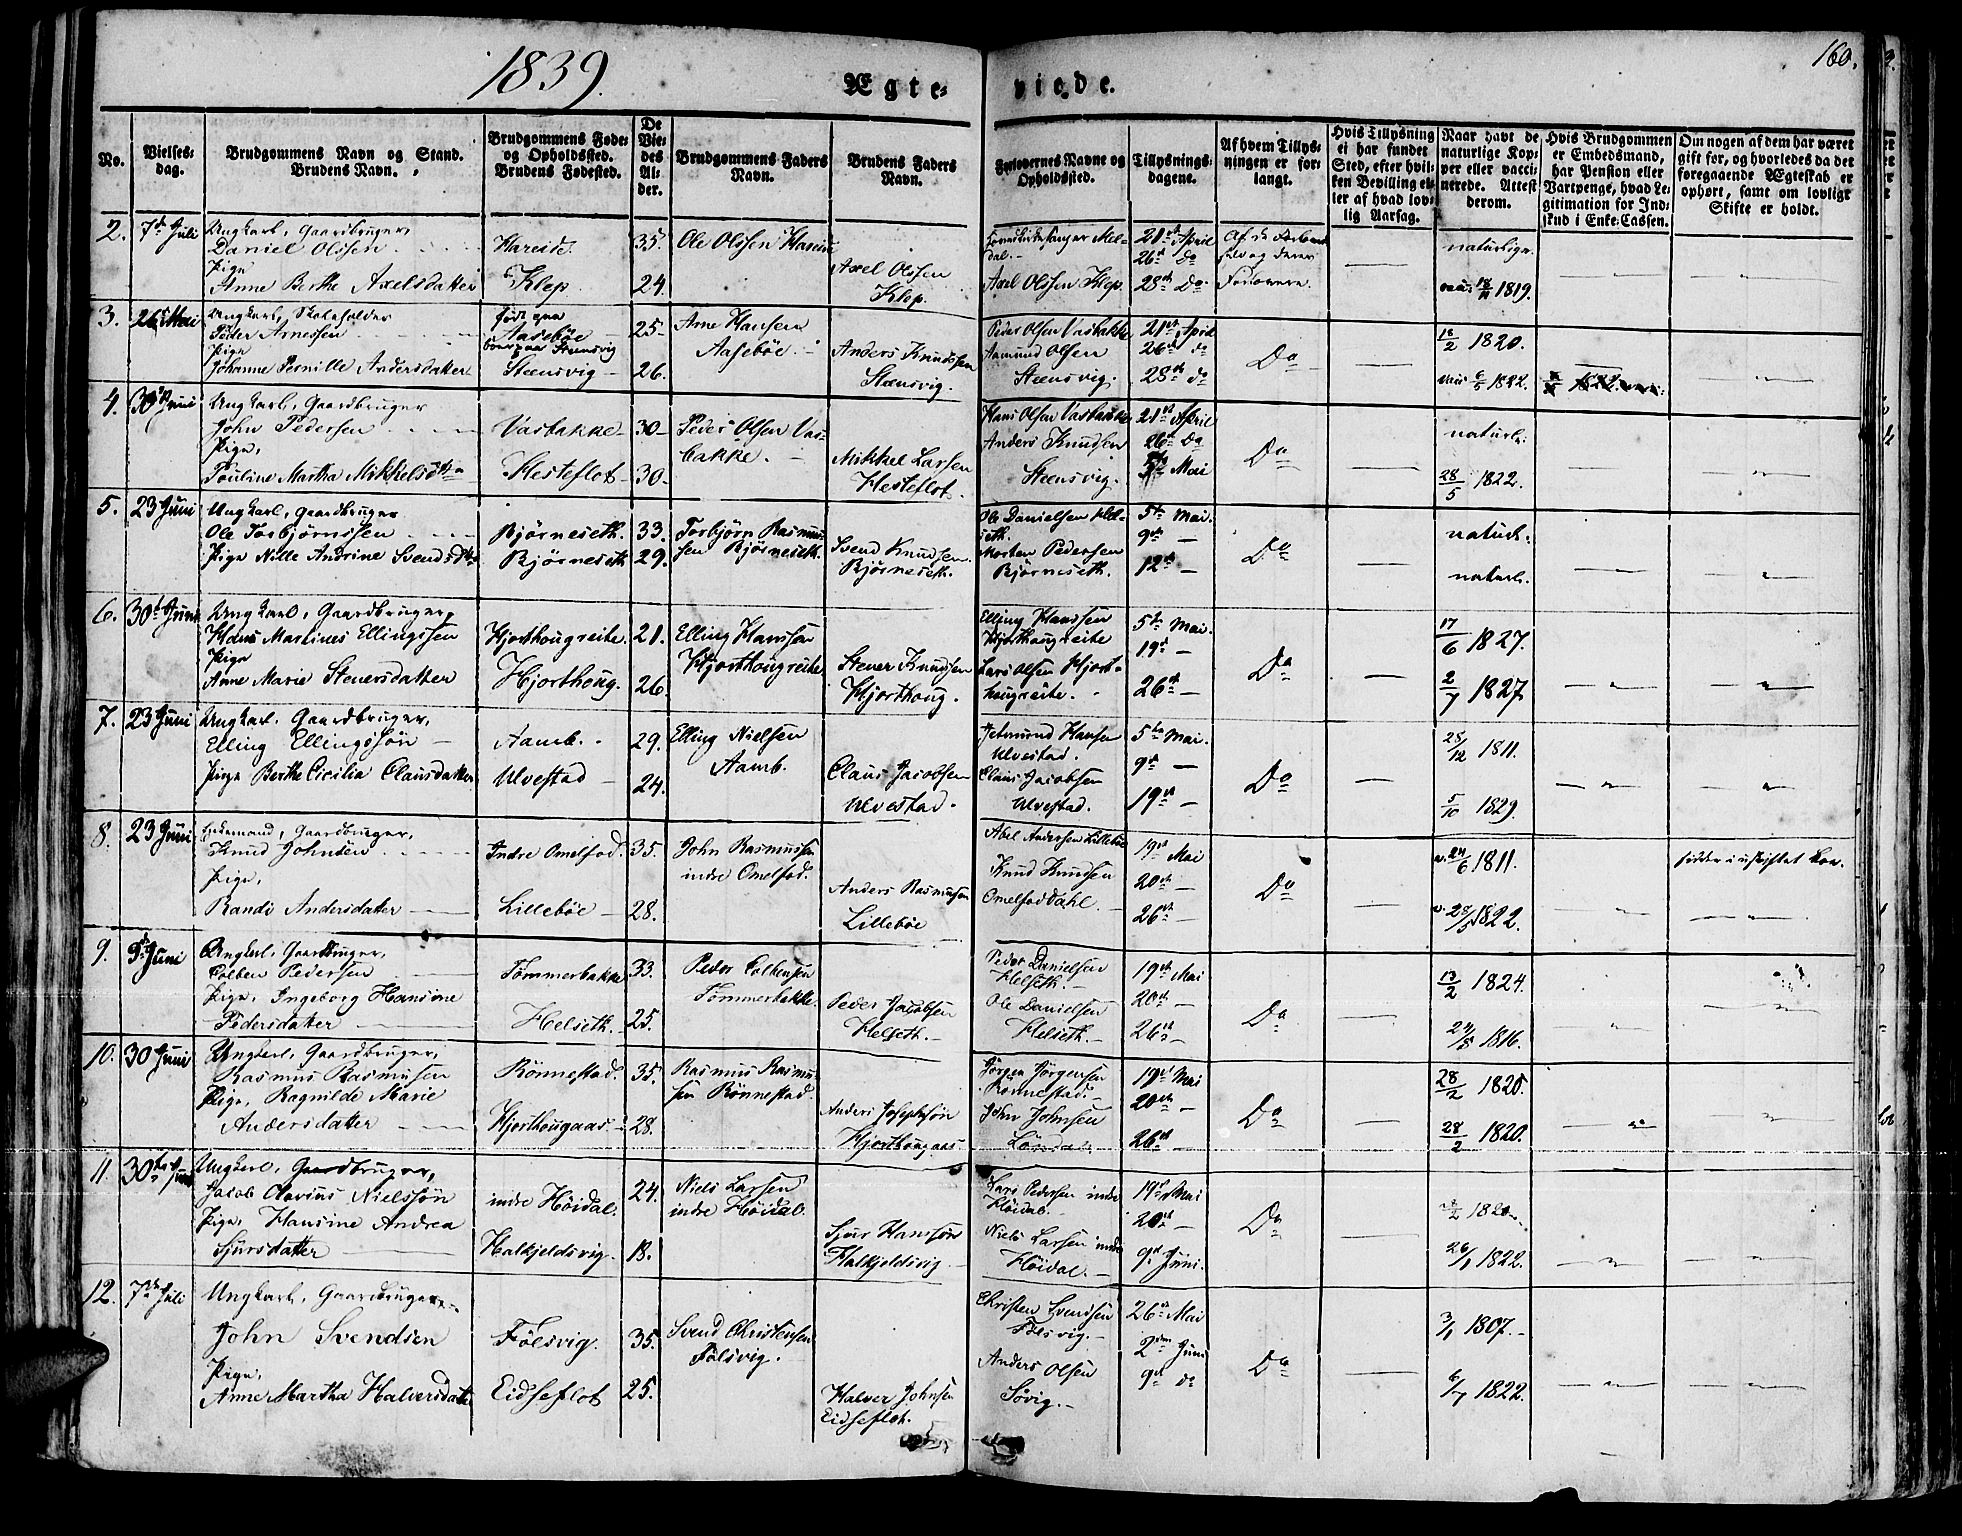 1839.
Ægte-
viede.
160.
No.
Vielses-
dag.
Brudgommens Navn og Stand.
Brudens Navn.
Brudgommens Føde-
og Opholdssted.
Brudens Fødested.
De
Vie-
des
Al-
der.
Brudgommens Faders
Navn.
Brudens Faders
Navn.
Forlovernes Navne og
Opholdssted.
Tillysnings-
dagene.
Af hvem Tillys-
ningen er for-
langt.
Hvis Tillysning
ei har fundet
Sted, efter hvil-
ken Bevilling el-
ler af hvad lov-
lig Aarsag.
Naar havt de
naturlige Kop-
per eller vacci-
nerede. Attest
derom.
Hvis Brudgommen
er Embedsmand,
har Pension eller
Vartpenge, hvad Le-
gitimation for Ind-
skud i Enke-Cassen.
Om nogen af dem har været
gift før, og hvorledes da det
foregaaende Ægteskab er
ophørt, samt om lovligt
Skifte er holdt.
2.
7de Juli
Ungkarl, Gaardbruger
Daniel Olssen
Pige
Anne Berthe Axelsdatter
Hareide
Klep.
35.
24.
Ole Olssen Hareide
Axel Olssen
Klep.
Axel Olssen Klep.
21de April
26de Do
28de Do
naturlige.
1819.
3.
26 Mai
Ungkarl, Skoleholder
Peder Arnessen
Pige
Johanne Pernille Andersdatter
født paa
Aasebøe
Steensvig
25
26.
Arne Hansen
Aasebøe.
Anders Knudsen
Steensvig.
Peder Olsen Vasbakke
Aamund Olsen
Steensvig.
21de April
26de do
28de do
Do
18/2 1820.
6/5 1822.
1822.
4.
30 Juni
Ungkarl, Gaardbruger
John Pedersen
Pige,
Pauline Martha Mikkelsdtr
Vasbakke
Hesteflot
30
30
Peder Olsen Vas-
bakke.
Mikkel Larsen
Hesteflot.
Hans Olsen Vasbakke
Anders Knudsen
Steensvig.
21de April
26de Do
5te Mai
Do
naturl:
28/5 1822.
5.
23 Juni
Ungkarl, Gaardbruger
Ole Torbjørnssen
Pige Nille Andrine Svendsdtr
Bjørneseth.
Bjørneseth
33.
29.
Torbjørn Rasmus-
sen Bjørneseth.
Svend Knudsen
Bjørneseth.
Ole Danielsen Hel-
seth.
Morten Pedersen
Bjørneseth.
5te Mai.
9de —
12te —
Do
naturl:
naturl:
6.
30te Juni
Ungkarl, Gaardbruger,
Hans Martinus Ellingssen
Pige
Anne Marie Steuersdatter
Hjorthougreite.
Hjorthoug.
21.
26
Elling Hanssen
Hjorthougreite
Steuer Knudsen
Hjorthoug.
Elling Hanssen
Hjorthougreite
Lars Olsen Hjort-
hougreite.
5te Mai.
19de —
26de —
Do
17/6 1827.
2/7 1827
7.
23 Juni
Ungkarl, Gaardbruger,
Elling Ellingssøn
Pige Berthe Cicilia Clausdatter
Aamb.
Ulvestad
29.
24.
Elling Nielsen
Aamb.
Claus Jacobsen
Ulvestad.
Jetmund Hansen
Ulvestad.
Claus Jacobsen
Ulvestad.
5te Mai.
9de —
19de —
Do
28/12 1811.
5/10 1829.
8.
23 Juni
Enkemand, Gaardbruger,
Knud Johnsen
Pige,
Randi Andersdatter
Indre Omelfod.
Lillebøe
35.
28.
John Rasmussen
indre Omelfod.
Anders Rasmussen
Lillebøe
Abel Andersen Lillebøe
Knud Knudsen
Omelfoddahl.
19de Mai
20de —
26de —
Do
v. 24/6 1811.
v. 28/5 1822.
9.
9de Juni
Ungkarl, Gaardbruger,
Colben Pedersen
Pige, Ingeborg Hansine
Pedersdatter
Tømmerbakke
Helseth.
33.
25.
Peder Colbensen
Tømmerbakke.
Peder Jacobsen
Helseth.
Peder Danielsen
Helseth.
Ole Danielsen
Helseth.
19de Mai
20de —
26de —
Do
13/2 1824.
1816.
10.
30 Juni
Ungkarl, Gaardbruger,
Rasmus Rasmusen
Pige, Ragnilde Marie
Andersdatter
Rønnestad.
Hjorthougaas
35.
28.
Rasmus Rasmus-
sen Rønnestad.
Anders Josephsøn
Hjorthougaas
Jørgen Jørgensen
Rønnestad.
John Johnsen
19de Mai
20de —
26de —
Do
28/2 1825.
28/2 1820.
11.
30te Juni
Ungkarl, Gaardbruger,
Jacob Olavius Nielssøn
Pige, Hansine Andrea
Sjursdatter
indre Høidal.
Halkjeldsvig.
24.
18.
Niels Larsen
indre Høidal.
Sjur Hanssøn
Halkjeldsvig
Lars Pedersen indre
Høidal.
Niels Larsen indre
Høidal.
19de Mai
20de —
9de Juni.
Do
1820.
26/1 1822.
12.
7de Juli
Ungkarl, Gaardbruger
John Svendsen
Pige,
Anne Martha Halversdatter
Følsvig.
Eidseflot
35.
25.
Svend Christensen
Følsvig.
Halver Johnsen
Eidseflot.
Christen Svendsen
Følsvig.
Anders Olsen
Søvig.
26de Mai
2den Juni
9de do
Do
3/1 1807.
6/7 1822.